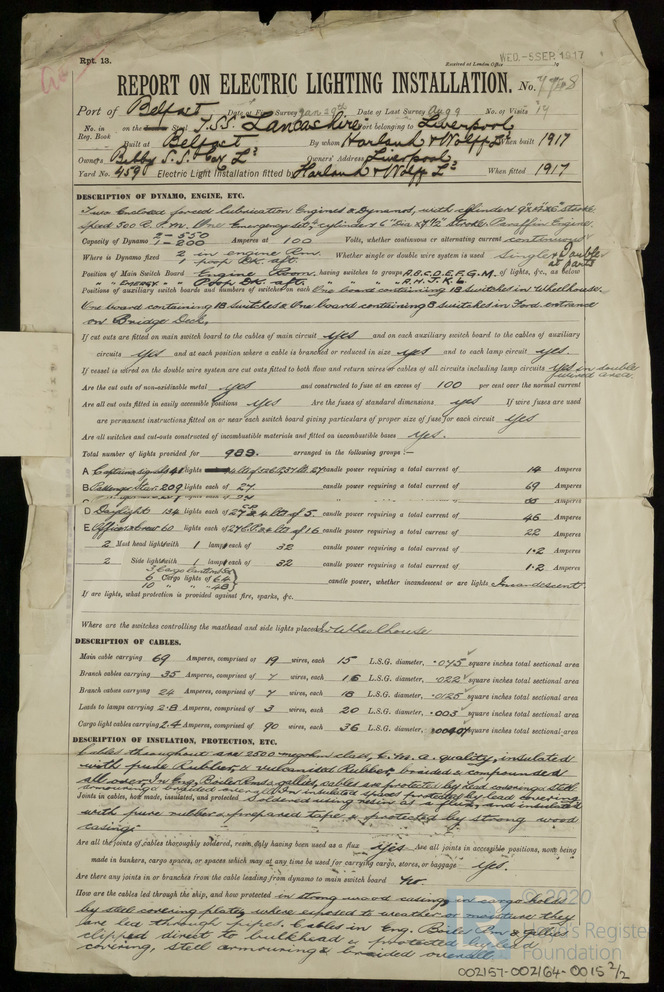 Rpt. 13.
Received at London Office WED. -5 SEP. 1917
REPORT ON ELECTRIC LIGHTING INSTALLATION. No.
Port of Belfast Date of First Survey Jan 29th Date of Last Survey Aug 9 No. of Visits 14
No. in Reg. Book on the Steel T.S.S. Lancashire Port belonging to Liverpool
Built at Belfast By whom Harland & Wolff Ld When built 1917
Owners Bibby S.S. Coy Ld Owners' Address Liverpool
Yard No. 459 Electric Light Installation fitted by Harland & Wolff Ld When fitted 1917
DESCRIPTION OF DYNAMO, ENGINE, ETC.
Two Enclosed forced lubrication Engines & Dynamos, with cylinders stroke
speed 500 R.P.M. One Emergency set, 4 cylinders 6" Dia x 7½" stroke. Paraffin Engine.
Capacity of Dynamo 2 - 550 1 - 200 Amperes at 100 Volts, whether continuous or alternating current continuous
Where is Dynamo fixed 2 in engine Rm. 1 poop Dk. aft. Whether single or double wire system is used Single & Double in parts
Position of Main Switch Board Engine Room. having switches to groups A,B,C,D,E,F,G,M. of lights, &c., as below
" " Emergy " Poop Dk. aft. " " " A,H,J,K,L.
Positions of auxiliary switch boards and numbers of switches on each One board containing 18 Switches in Wheelhouse.
One board containing 18 Switches & One board containing 8 switches in Ford. entrance
on Bridge Deck.
If cut outs are fitted on main switch board to the cables of main circuit yes and on each auxiliary switch board to the cables of auxiliary
circuits yes and at each position where a cable is branched or reduced in size yes and to each lamp circuit yes.
If vessel is wired on the double wire system are cut outs fitted to both flow and return wires or cables of all circuits including lamp circuits yes in double wired area.
Are the cut outs of non-oxidizable metal yes and constructed to fuse at an excess of 100 per cent over the normal current
Are all cut outs fitted in easily accessible positions yes Are the fuses of standard dimensions yes If wire fuses are used
are permanent instructions fitted on or near each switch board giving particulars of proper size of fuse for each circuit yes
Are all switches and cut-outs constructed of incombustible materials and fitted on incombustible bases yes.
Total number of lights provided for 989. arranged in the following groups :—
A Captains, signals 48 lights candle power requiring a total current of 14 Amperes
B Passenger Star. 209 lights each of 27 candle power requiring a total current of 69 Amperes
D Daylight 134 lights each of 27 C.P. & 4 Lts of 5. candle power requiring a total current of 46 Amperes
E Officers & crew 60 lights each of 27 C.P. & 4 Lts of 16 candle power requiring a total current of 22 Amperes
2 Mast head light with 1 lamp each of 32 candle power requiring a total current of 1.2 Amperes
2 Side light with 1 lamp each of 32 candle power requiring a total current of 1.2 Amperes
6 Cargo lights of 64
10 " " 48 candle power, whether incandescent or arc lights Incandescent.
If arc lights, what protection is provided against fire, sparks, &c.
Where are the switches controlling the masthead and side lights placed In Wheelhouse
DESCRIPTION OF CABLES.
Main cable carrying 69 Amperes, comprised of 19 wires, each 15 L.S.G. diameter, .075 square inches total sectional area
Branch cables carrying 35 Amperes, comprised of 7 wires, each 16 L.S.G. diameter, .022 square inches total sectional area
Branch cables carrying 24 Amperes, comprised of 7 wires, each 18 L.S.G. diameter, .0125 square inches total sectional area
Leads to lamps carrying 2.8 Amperes, comprised of 3 wires, each 20 L.S.G. diameter, .003 square inches total sectional area
Cargo light cables carrying 2.4 Amperes, comprised of 90 wires, each 36 L.S.G. diameter, square inches total sectional area
DESCRIPTION OF INSULATION, PROTECTION, ETC.
Cables throughout are 2500 megohm class, C.M.A. quality, insulated
with pure Rubber, & vulcanised Rubber, braided & compounded
all over. In Eng. Boiler Rms & gallies, cables are protected by lead covering & steel
armouring & braided overall. In insulated spaces protected by lead covering
Joints in cables, how made, insulated, and protected Soldered using resin as a flux, and insulated
with pure rubber & prepared tape & protected by strong wood
casing.
Are all the joints of cables thoroughly soldered, resin only having been used as a flux yes Are all joints in accessible positions, none being
made in bunkers, cargo spaces, or spaces which may at any time be used for carrying cargo, stores, or baggage yes.
Are there any joints in or branches from the cable leading from dynamo to main switch board no
How are the cables led through the ship, and how protected in strong wood casing, in cargo holds
by steel covering plates, where exposed to weather or moisture they
are led through pipes. Cables in Eng. Boiler Rm & gallies
clipped direct to bulkhead & protected by lead
covering, steel armouring & braided overall.
© 2020
Lloyd's Register
Foundation
002157-002164-0015 2/2